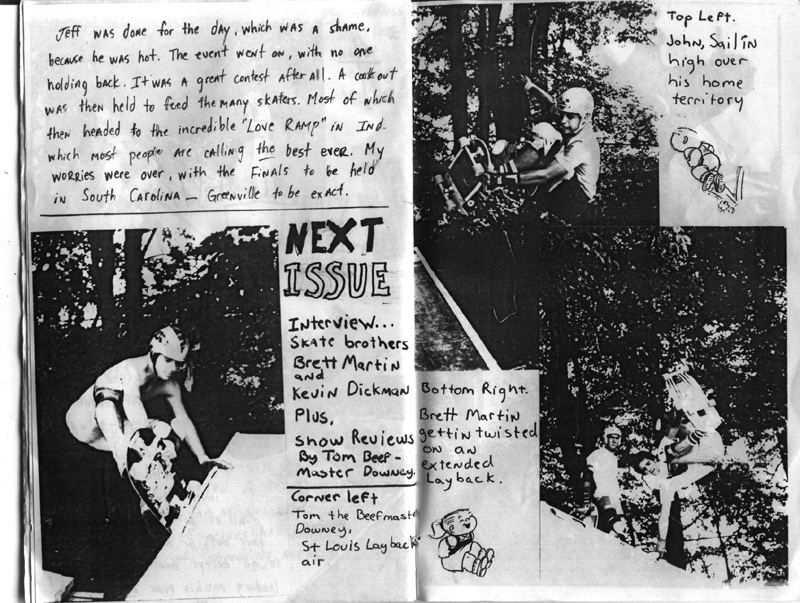 Jeff was done for the day, which was a shame,
because he was hot. The event went on, with no one
holding back. It was a great contest after all. A cook out
was then held to feed the many skaters. Most of which
then headed to the incredible "Love Ramp" in Ind.
which most people are calling the best ever. My
worries were over, with the Finals to be held
in South Carolina — Greenville to be exact.
NEXT
ISSUE
Interview...
Skate brothers
Brett Martin
and
Kevin Dickman
Plus,
show Reviews
By Tom Beef-
Master Downey.
Corner left
Tom the Beefmaste
Downey,
St Louis Layback
air.
Top Left.
John, Sailin
high over
his home
territory
Bottom Right.
Brett Martin
gettin twisted
on an
extended
Layback.